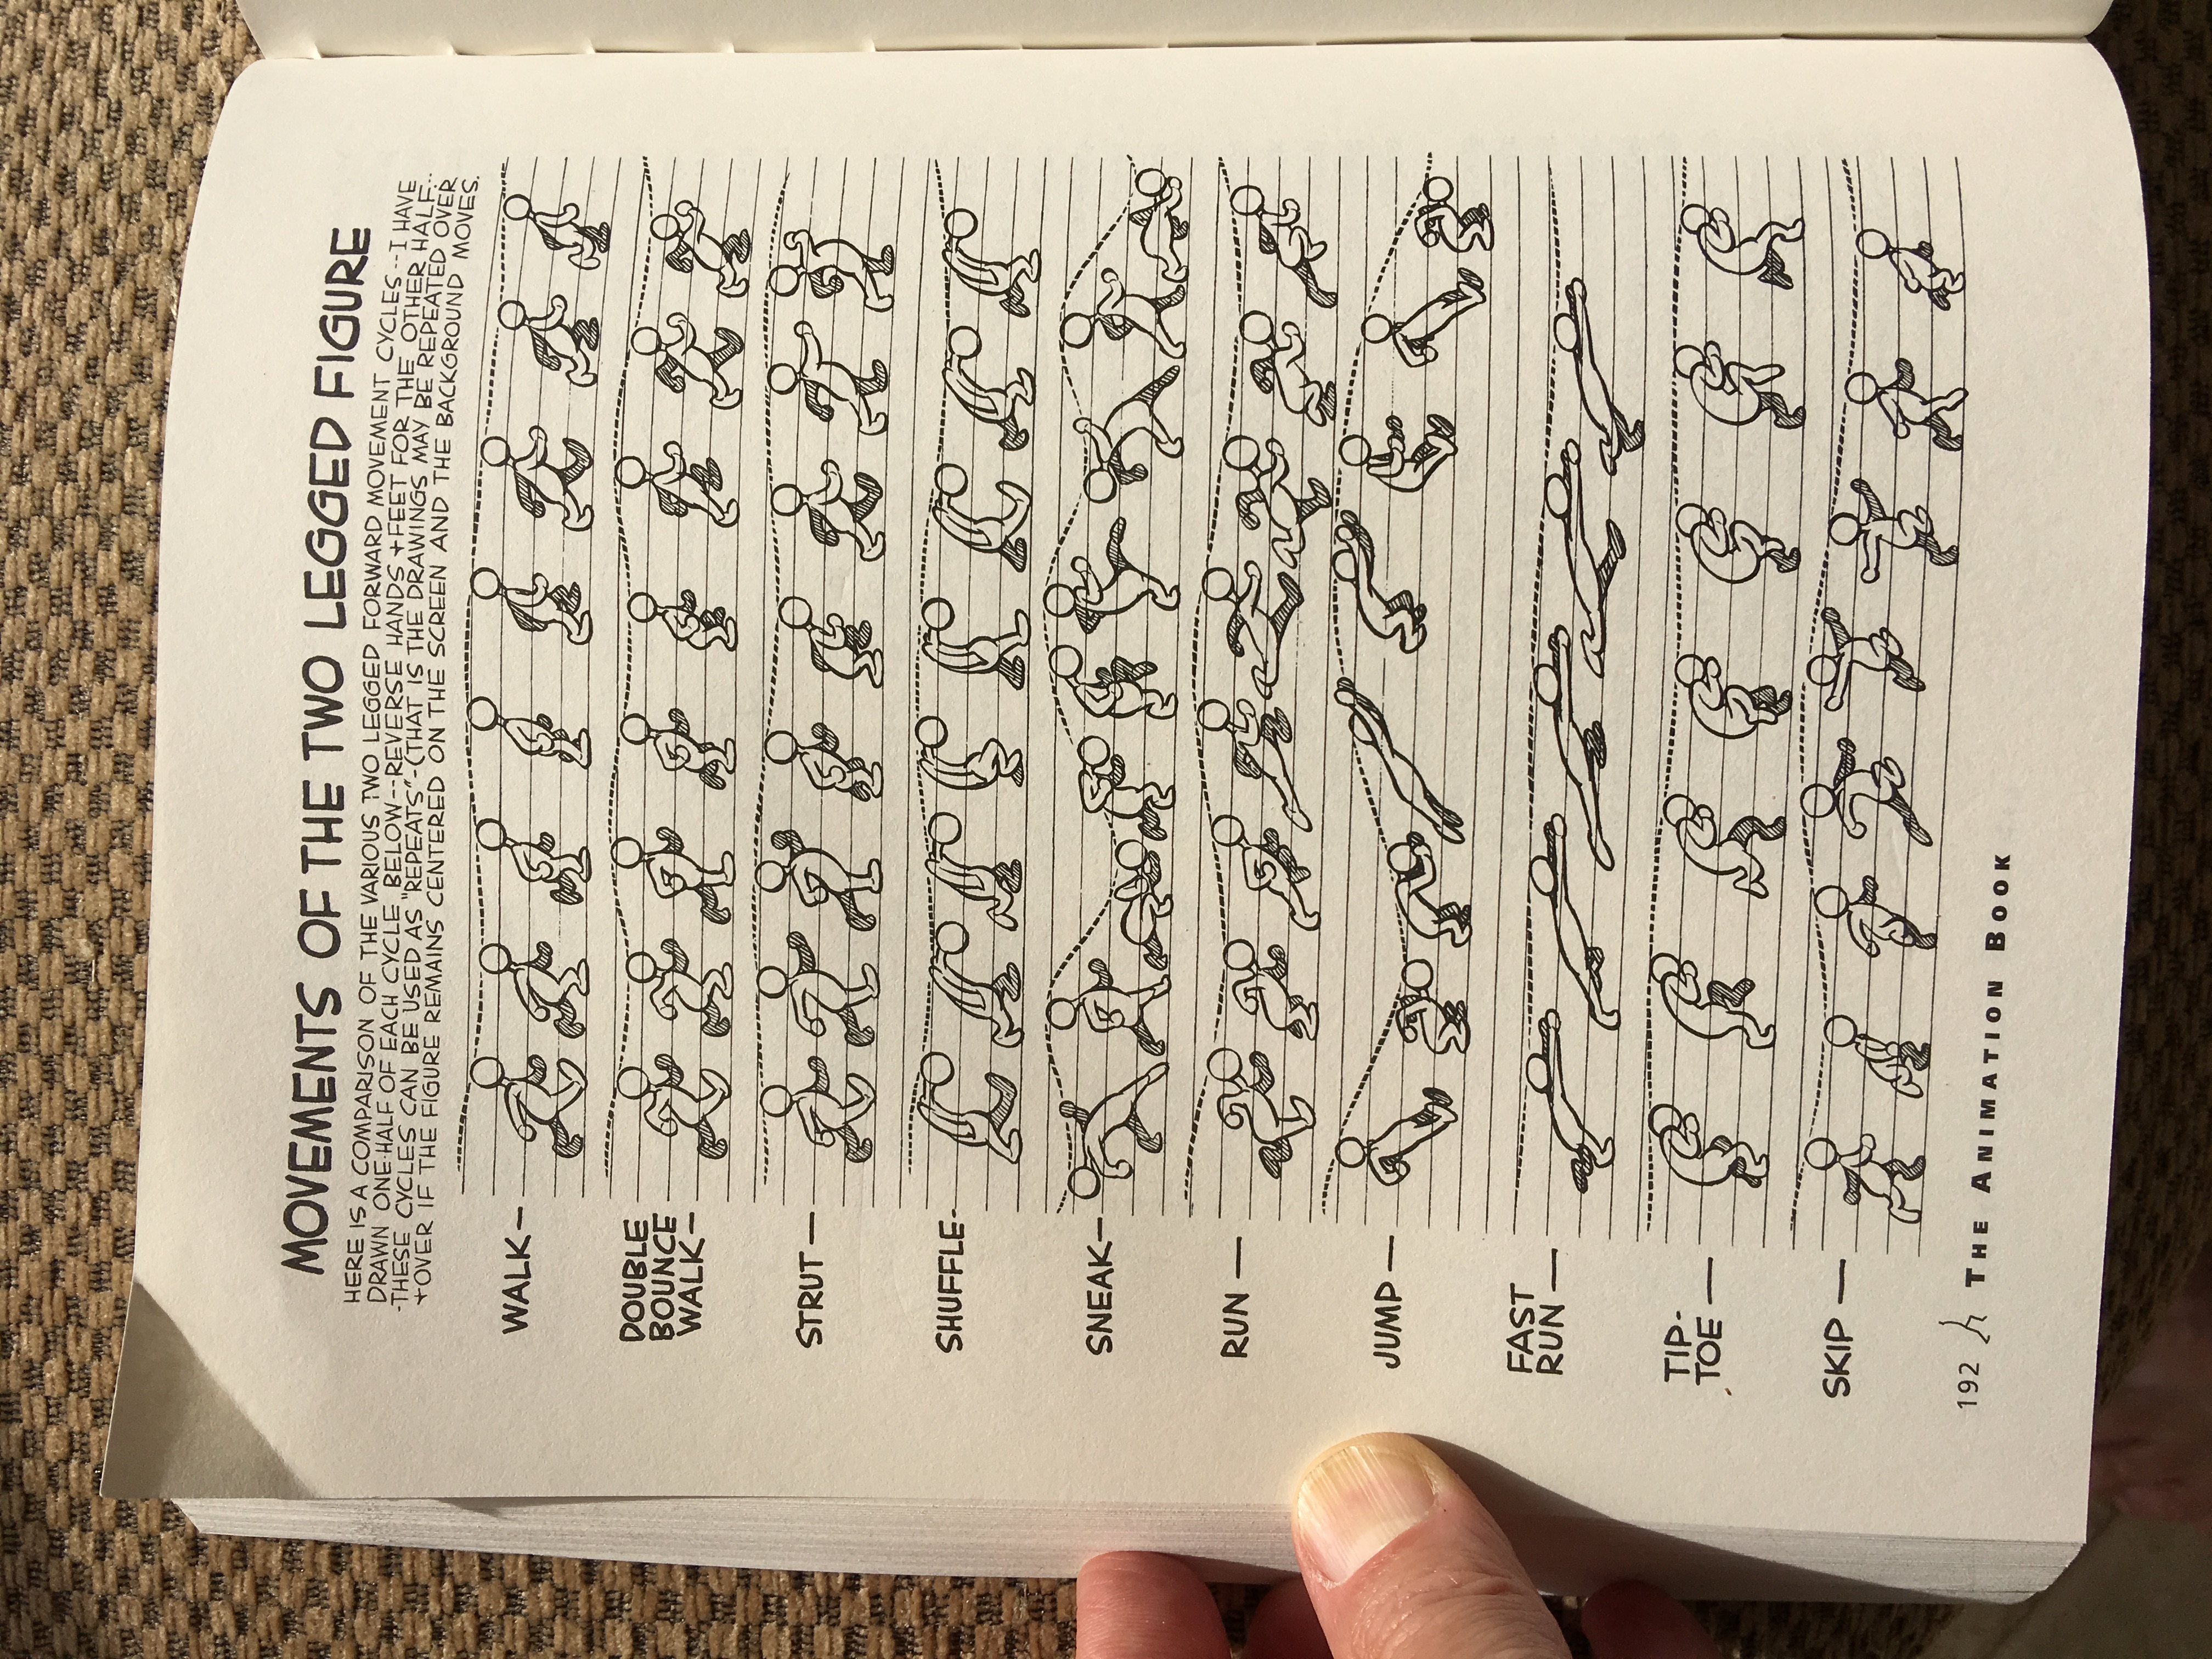 MOVEMENTS OF THE TWO LEGGED FIGURE
HERE IS A COMPARISON OF THE VARIOUS TWO LEGGED FORWARD MOVEMENT CYCLES--I HAVE
DRAWN ONE-HALF OF EACH CYCLE BELOW--REVERSE HANDS + FEET FOR THE OTHER HALF--
-THESE CYCLES CAN BE USED AS "REPEATS"-(THAT IS THE DRAWINGS MAY BE REPEATED OVER
+OVER IF THE FIGURE REMAINS CENTERED ON THE SCREEN AND THE BACKGROUND MOVES.
WALK-
DOUBLE
BOUNCE
WALK-
STRUT-
SHUFFLE-
SNEAK-
RUN-
JUMP-
FAST
RUN-
TIP-
TOE-
SKIP-
192 THE ANIMATION BOOK